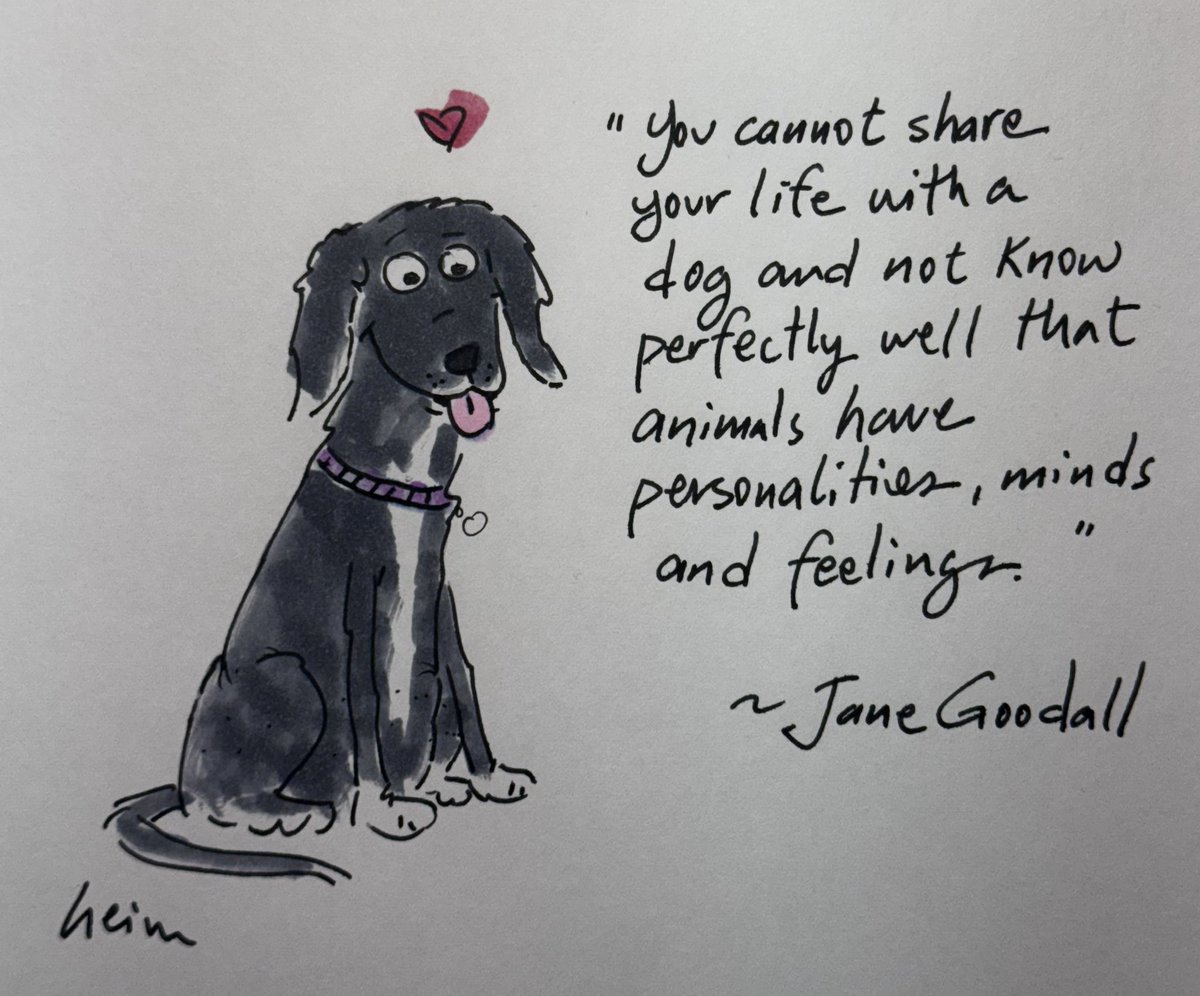 "You cannot share
your life with a
dog and not know
perfectly well that
animals have
personalities, minds
and feelings."
~ Jane Goodall
heim